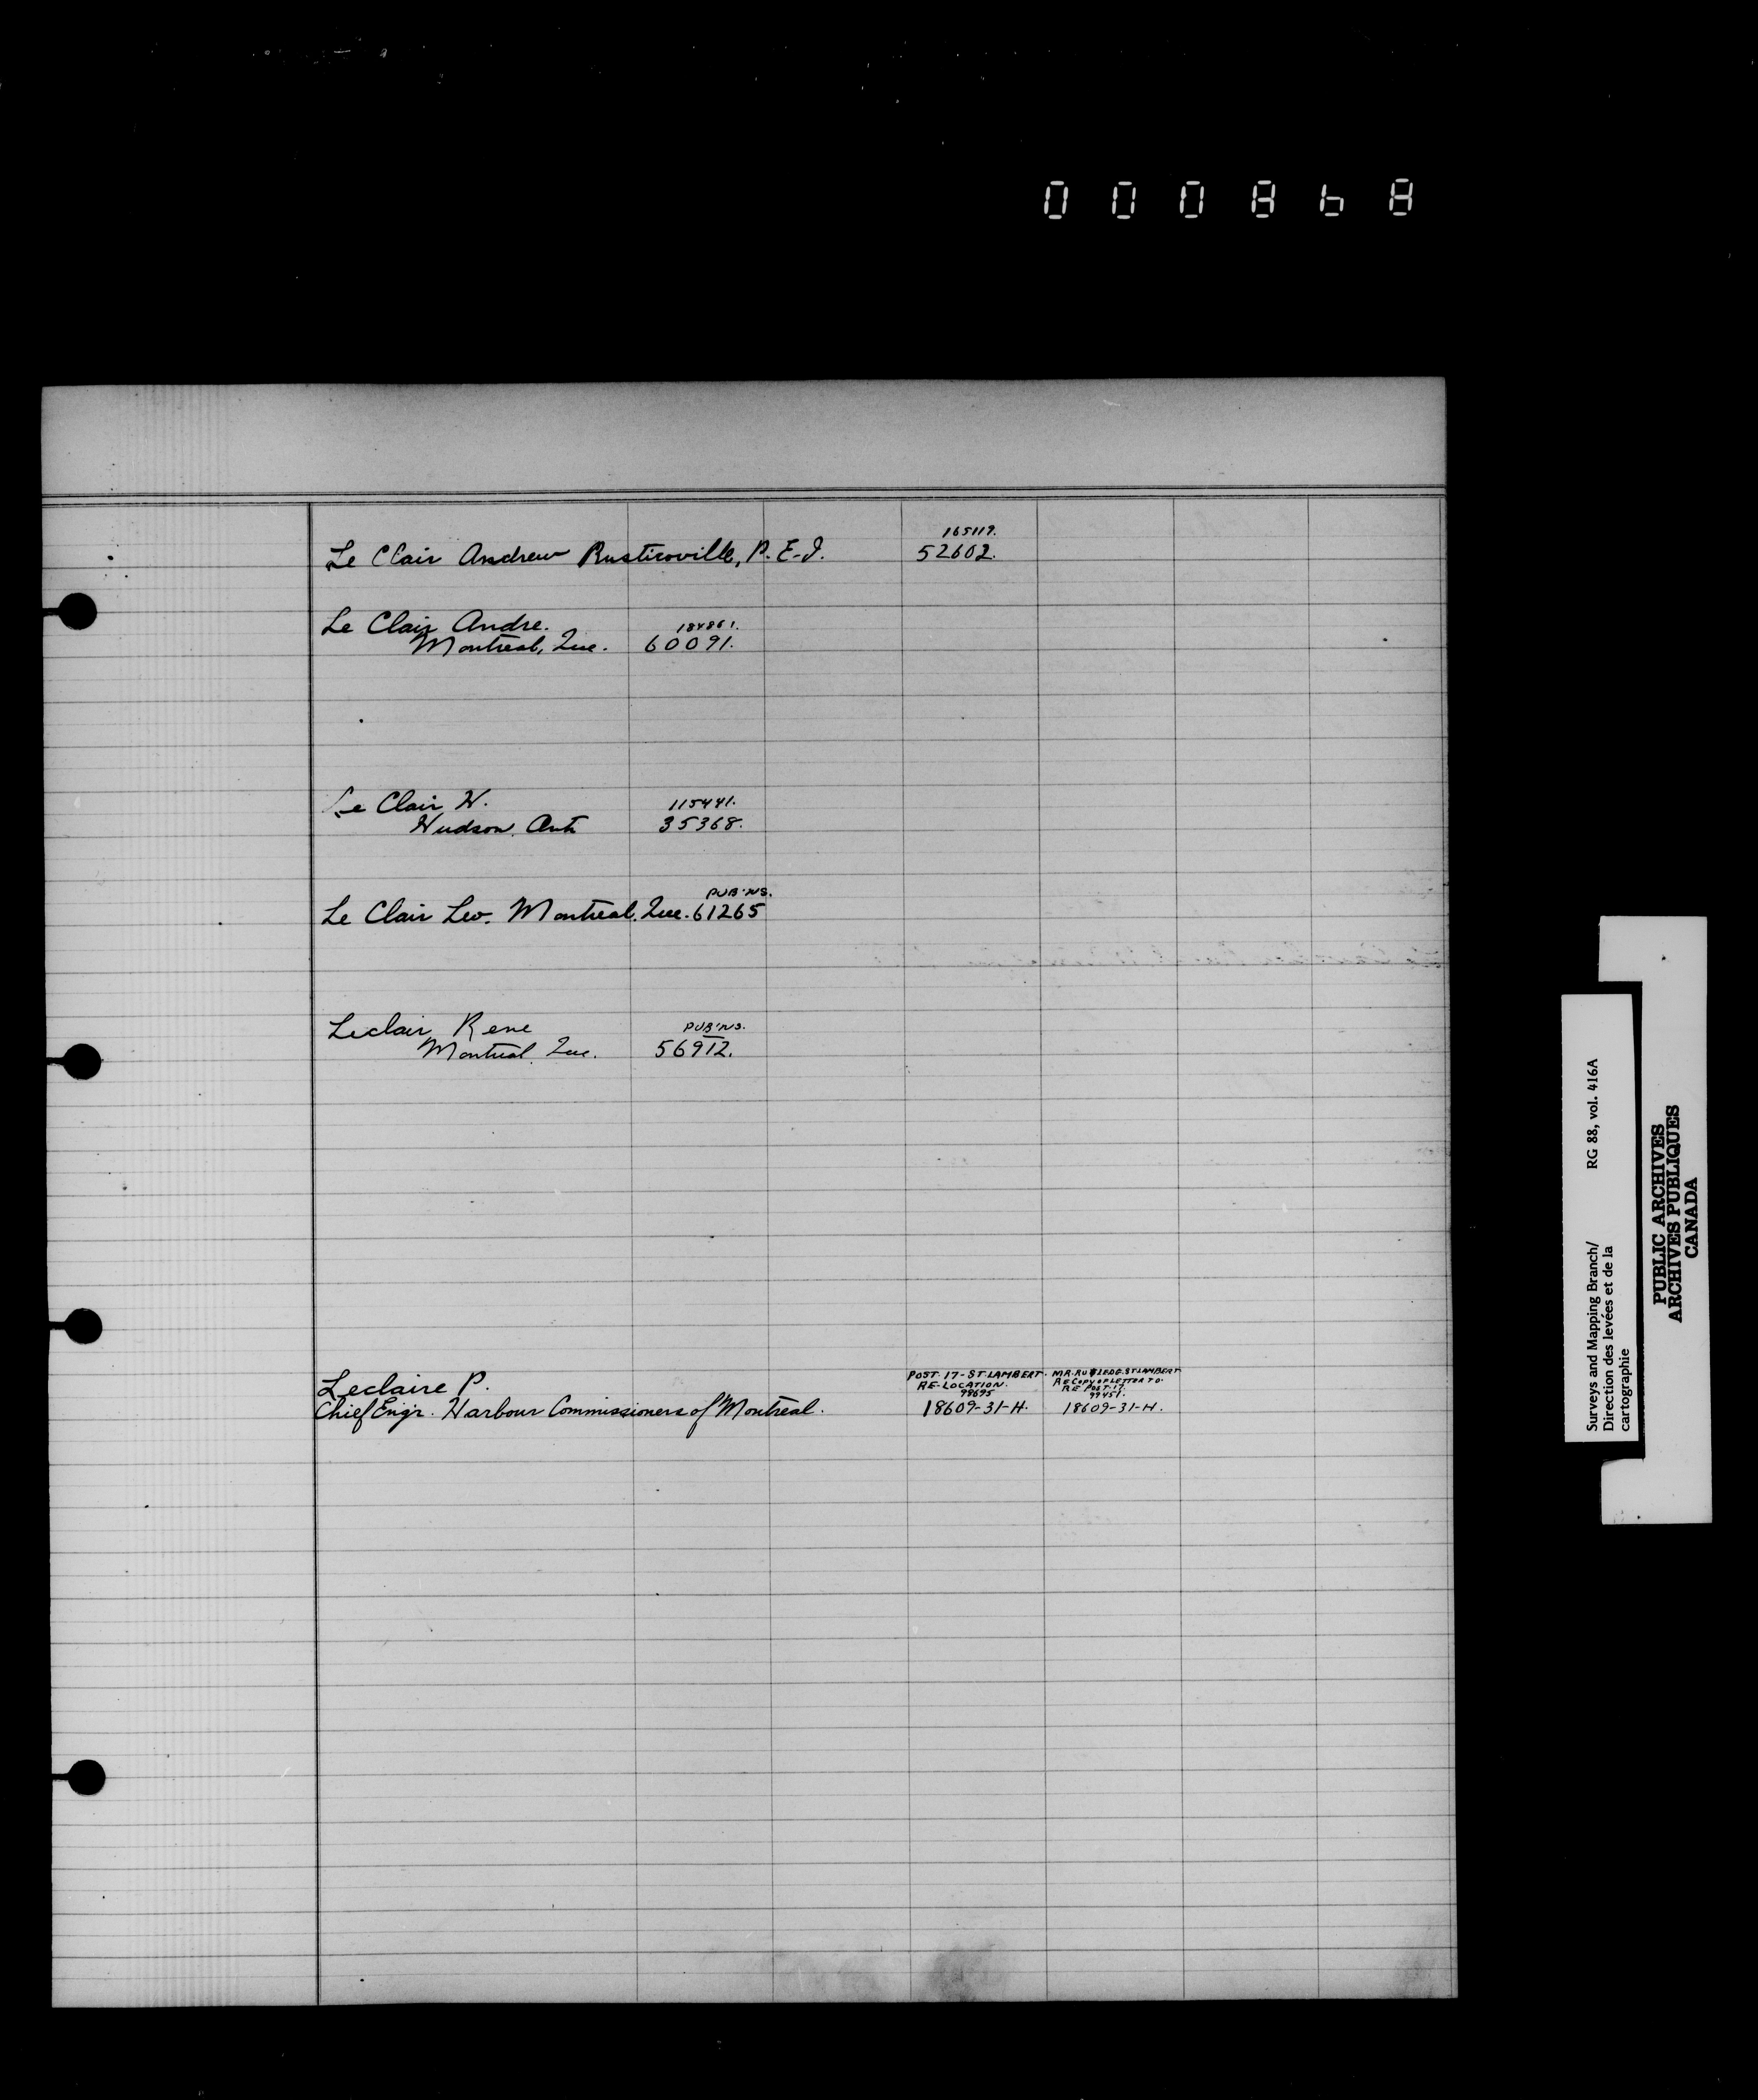 000868
165119.
Le Clair Andrew Rusticoville, P. E. I. 52602.
Le Clair Andre. 184861.
Montreal, Que. 60091.
Le Clair H. 115441.
Hudson, Ont 35368.
PUB'NS.
Le Clair Leo. Montreal. Que. 61265
Leclair Rene PUB'NS.
Montreal. Que. 56912.
POST 17 - ST. LAMBERT. MR. RUTLEDGE. ST LAMBERT
RE-LOCATION. RE COPY OF LETTER TO
Leclaire P. RE POST 17.
99695 99451.
Chief Engr. Harbour Commissioners of Montreal. 18609-31-H. 18609-31-H.
Surveys and Mapping Branch/ RG 88, vol. 416A
Direction des levées et de la
cartographie
PUBLIC ARCHIVES
ARCHIVES PUBLIQUES
CANADA